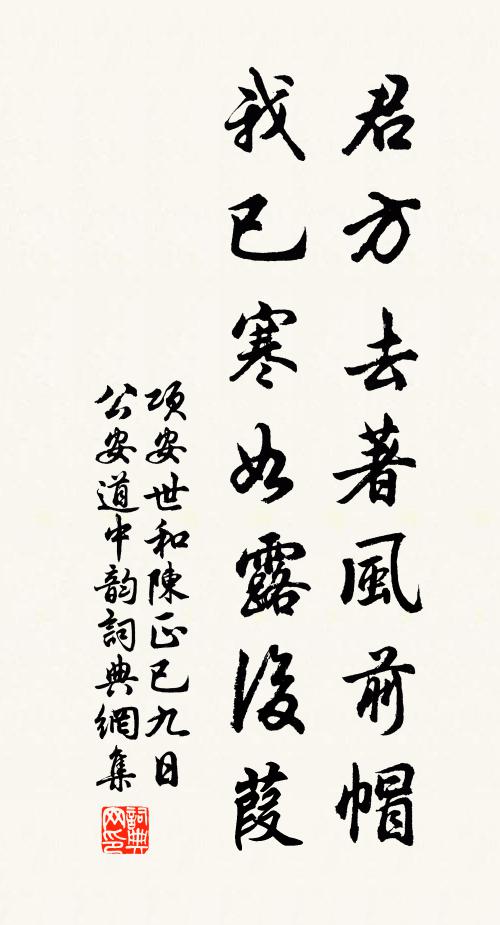 君方去著風前帽
我已寒如露後葭
項安世和陳正已九日
公安道中韵詞典網集
詞典網印